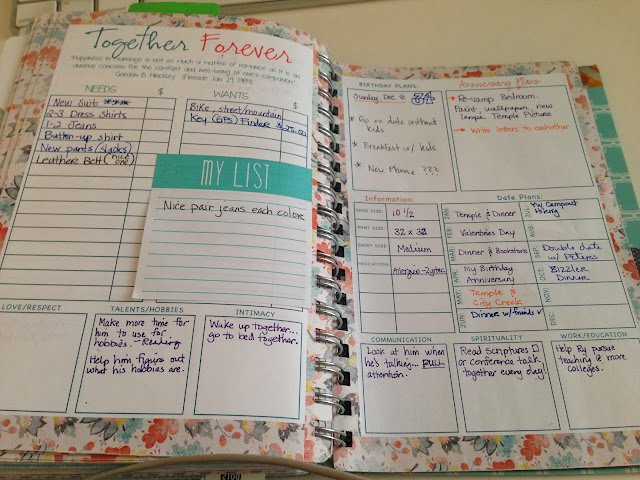 Together Forever
"Happiness in marriage is not so much a matter of Romance as it is an
anxious concern for the comfort and well-being of one's companion"
Gordon B. Hinckley (Fireside Jan 29, 1984)
NEEDS $ WANTS $
New Suit
2-3 Dress Shirts
1-2 Jeans
Button-up shirt
New pants (slacks)
Leather Belt (nice one)
Bike, street/mountain
Key (GPS) Finder $25.00
MY LIST
Nice pair jeans each colore
LOVE/RESPECT
TALENTS/HOBBIES
Make more time for
him to use for
hobbies. - Reading
Help him figure out
what his hobbies are.
INTIMACY
Wake up together...
go to bed together.
BIRTHDAY PLANS:
Sunday, Dec. 8
* Go on date without
kids
* Breakfast w/ kids
* New Phone ???
Anniversary Plans:
→ Re-vamp Bedroom.
Paint, wallpaper, new
lamps, Temple Picture
→ Write letters to eachother
Information:
SHOE SIZE: 10 1/2
PANT SIZE: 32 x 32
SHIRT SIZE: Medium
MEDICATIONS: Allergies - Zyrtec
Date Plans:
JAN: Temple & Dinner
FEB: Valentines Day
MAR: Dinner & Bookstore
APR: My Birthday
Anniversary
MAY: Temple &
City Creek
JUN: Dinner w/ friends
JUL: YW Campout
Hiking
AUG:
SEP: Double date
w/ Peters
OCT: Sizzler
Dinner
NOV:
DEC:
COMMUNICATION
Look at him when
he's talking... FULL
attention.
SPIRITUALITY
Read Scriptures
or conference talk
together every day!
WORK/EDUCATION
Help Ry pursue
teaching @ more
colleges.